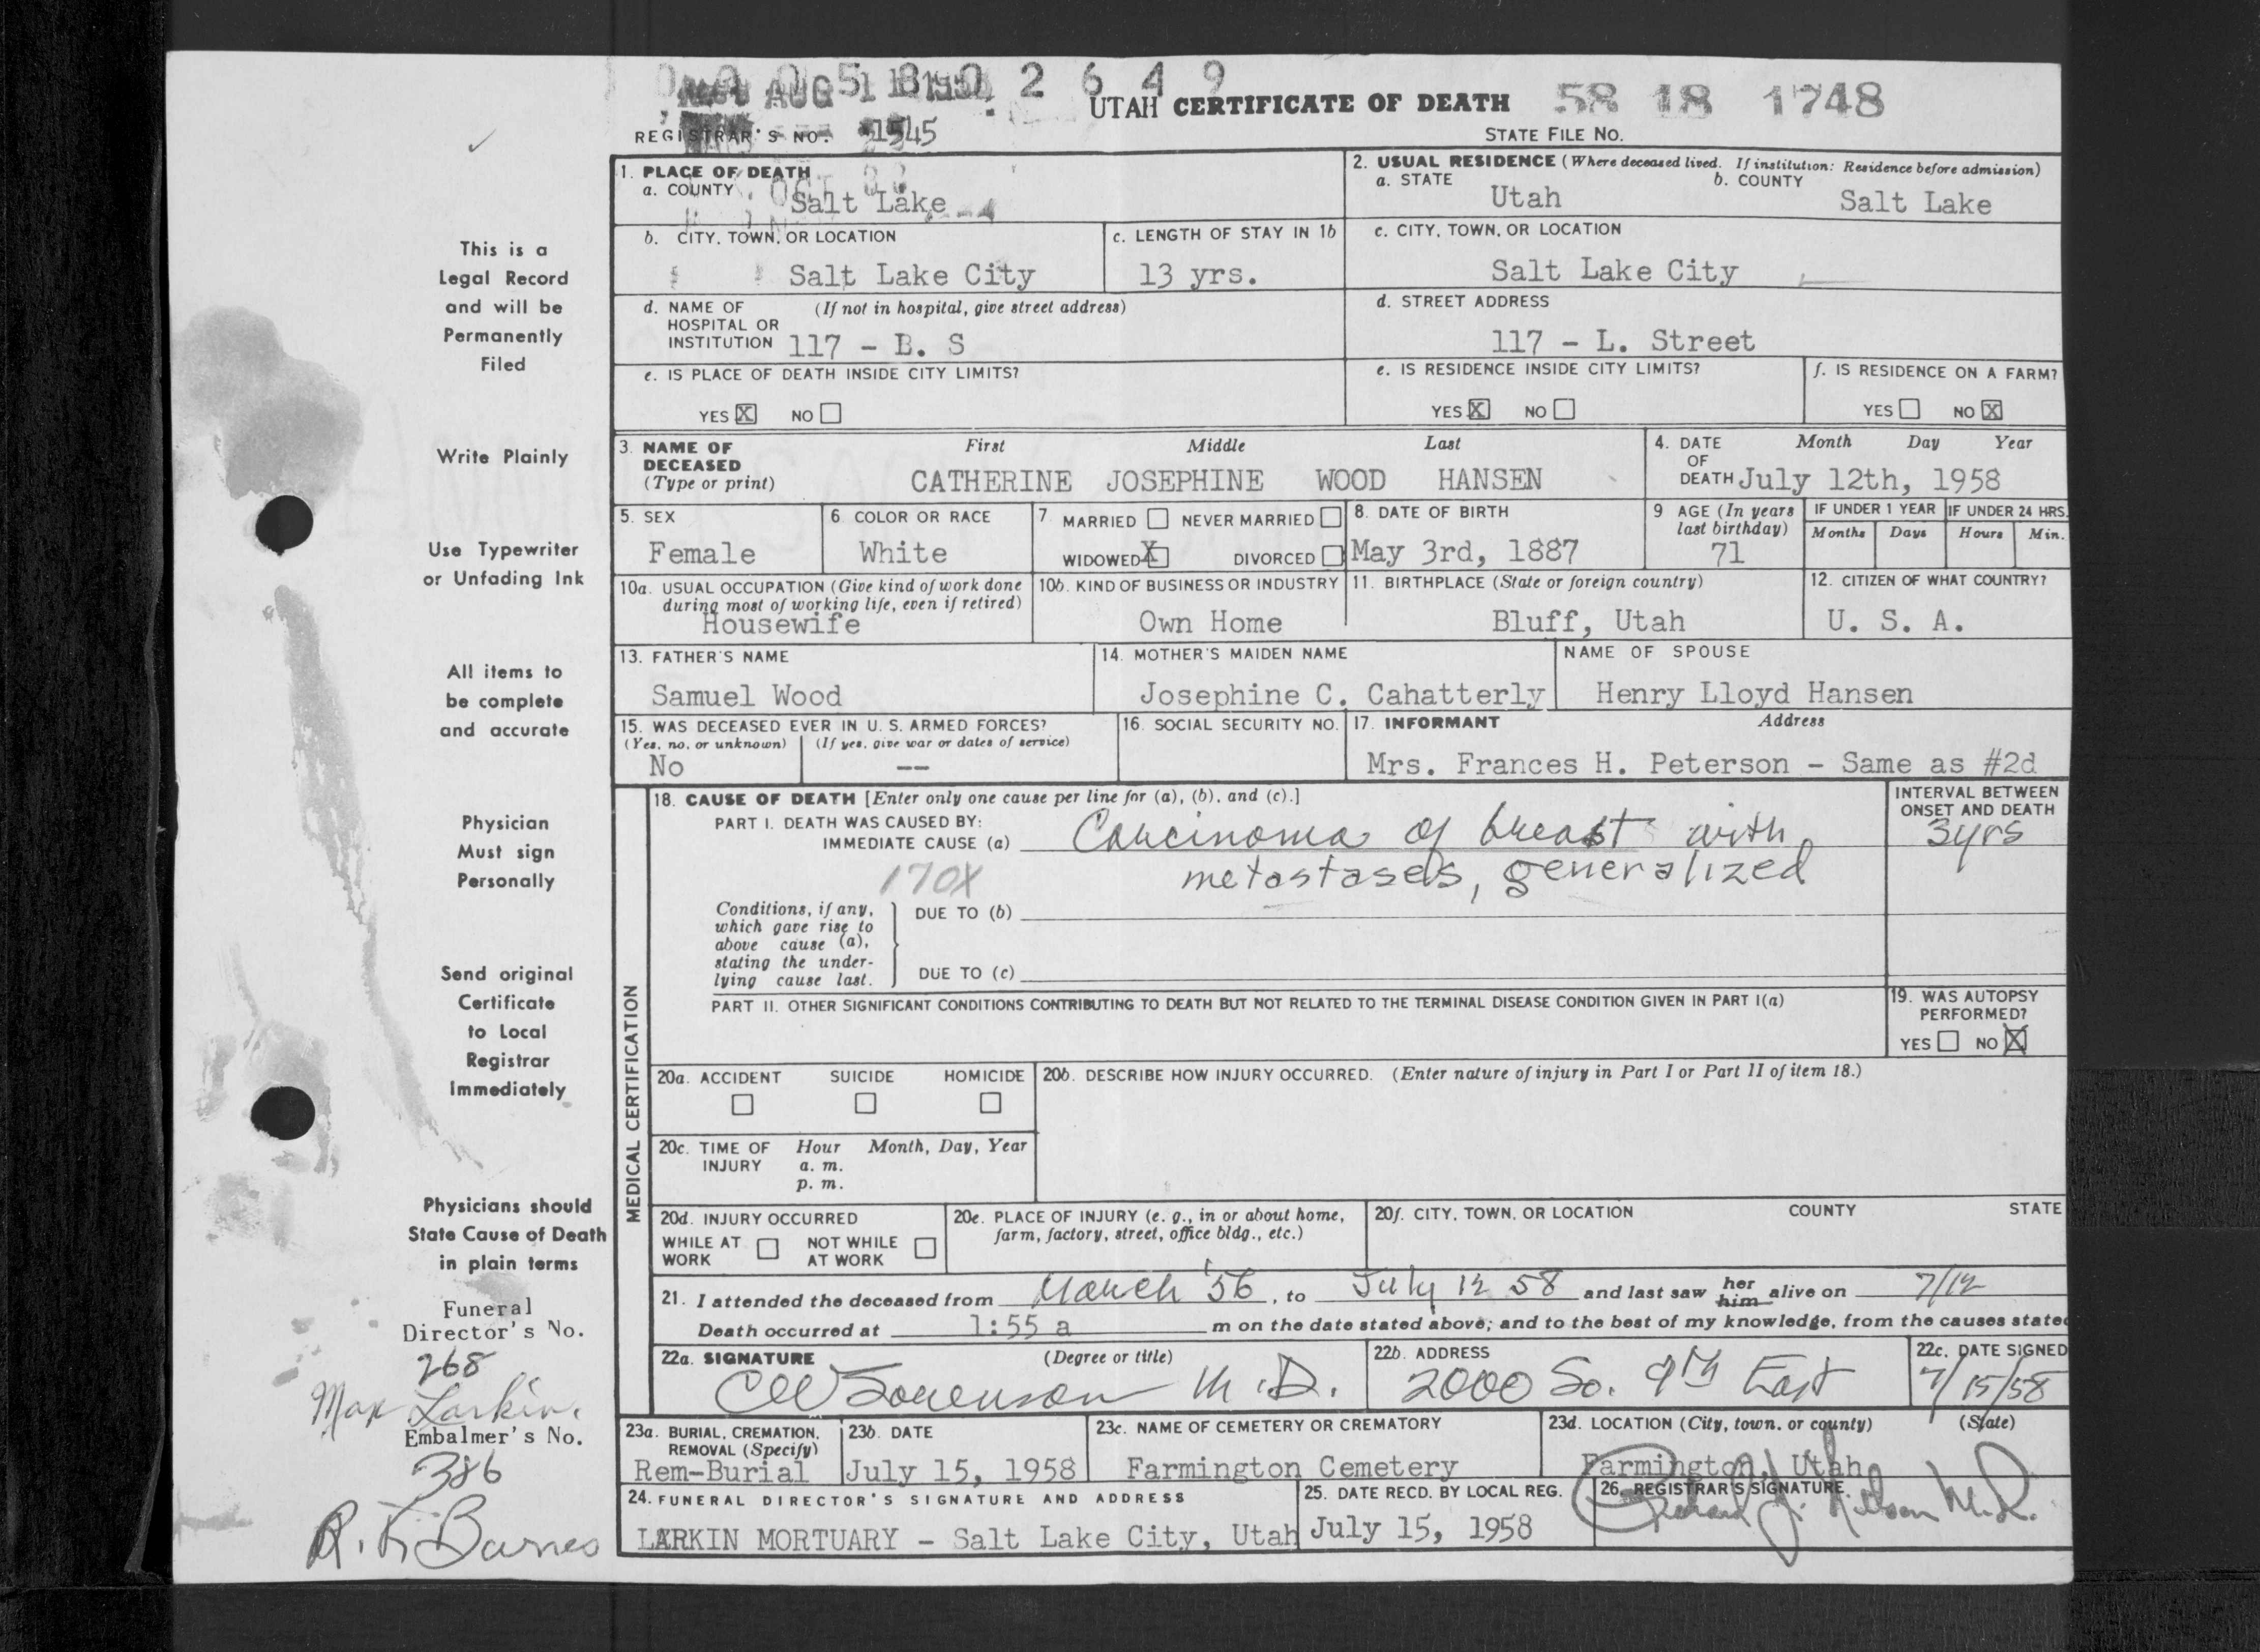 0005802649
AUG
UTAH CERTIFICATE OF DEATH 58 18 1748
REGISTRAR'S NO. 1545 STATE FILE NO.
1. PLACE OF DEATH
a. COUNTY Salt Lake
OCT
2. USUAL RESIDENCE (Where deceased lived. If institution: Residence before admission)
a. STATE Utah b. COUNTY Salt Lake
b. CITY, TOWN, OR LOCATION Salt Lake City
c. LENGTH OF STAY IN 1b 13 yrs.
c. CITY, TOWN, OR LOCATION Salt Lake City
d. NAME OF (If not in hospital, give street address)
HOSPITAL OR
INSTITUTION 117 - S
d. STREET ADDRESS
117 - L. Street
e. IS PLACE OF DEATH INSIDE CITY LIMITS?
YES X NO
e. IS RESIDENCE INSIDE CITY LIMITS?
YES X NO
f. IS RESIDENCE ON A FARM?
YES NO X
3. NAME OF DECEASED (Type or print) First Middle Last
CATHERINE JOSEPHINE WOOD HANSEN
4. DATE OF DEATH Month Day Year
July 12th, 1958
5. SEX
Female
6 COLOR OR RACE
White
7 MARRIED NEVER MARRIED
WIDOWED X DIVORCED
8. DATE OF BIRTH
May 3rd, 1887
9 AGE (In years last birthday)
71
IF UNDER 1 YEAR
Months Days
IF UNDER 24 HRS.
Hours Min.
10a. USUAL OCCUPATION (Give kind of work done during most of working life, even if retired)
Housewife
10b. KIND OF BUSINESS OR INDUSTRY
Own Home
11. BIRTHPLACE (State or foreign country)
Bluff, Utah
12. CITIZEN OF WHAT COUNTRY?
U. S. A.
13. FATHER'S NAME
Samuel Wood
14. MOTHER'S MAIDEN NAME
Josephine C. Cahatterly
NAME OF SPOUSE
Henry Lloyd Hansen
15. WAS DECEASED EVER IN U. S. ARMED FORCES?
(Yes, no, or unknown) (If yes, give war or dates of service)
No --
16. SOCIAL SECURITY NO.
17. INFORMANT Address
Mrs. Frances H. Peterson - Same as #2d
MEDICAL CERTIFICATION
18. CAUSE OF DEATH [Enter only one cause per line for (a), (b), and (c).]
PART I. DEATH WAS CAUSED BY:
IMMEDIATE CAUSE (a) Carcinoma of breast with
170X metastases, generalized
INTERVAL BETWEEN
ONSET AND DEATH
3yrs
Conditions, if any,
which gave rise to
above cause (a),
stating the under-
lying cause last.
DUE TO (b)
DUE TO (c)
PART II. OTHER SIGNIFICANT CONDITIONS CONTRIBUTING TO DEATH BUT NOT RELATED TO THE TERMINAL DISEASE CONDITION GIVEN IN PART I(a)
19. WAS AUTOPSY
PERFORMED?
YES NO X
20a. ACCIDENT SUICIDE HOMICIDE
20b. DESCRIBE HOW INJURY OCCURRED. (Enter nature of injury in Part I or Part II of item 18.)
20c. TIME OF INJURY Hour Month, Day, Year
a. m.
p. m.
20d. INJURY OCCURRED
WHILE AT WORK NOT WHILE AT WORK
20e. PLACE OF INJURY (e. g., in or about home, farm, factory, street, office bldg., etc.)
20f. CITY, TOWN, OR LOCATION COUNTY STATE
21. I attended the deceased from March '56, to July 12 58 and last saw her him alive on 7/12
Death occurred at 1:55 a m on the date stated above; and to the best of my knowledge, from the causes stated
22a. SIGNATURE (Degree or title)
CW Sorenson M.D.
22b. ADDRESS
2000 So. 9th East
22c. DATE SIGNED
7/15/58
23a. BURIAL, CREMATION, REMOVAL (Specify)
Rem-Burial
23b. DATE
July 15, 1958
23c. NAME OF CEMETERY OR CREMATORY
Farmington Cemetery
23d. LOCATION (City, town, or county) (State)
Farmington, Utah
24. FUNERAL DIRECTOR'S SIGNATURE AND ADDRESS
LARKIN MORTUARY - Salt Lake City, Utah
25. DATE RECD. BY LOCAL REG.
July 15, 1958
26. REGISTRAR'S SIGNATURE
This is a
Legal Record
and will be
Permanently
Filed
Write Plainly
Use Typewriter
or Unfading Ink
All items to
be complete
and accurate
Physician
Must sign
Personally
Send original
Certificate
to Local
Registrar
Immediately
Physicians should
State Cause of Death
in plain terms
Funeral
Director's No.
268
Max Larkin
Embalmer's No.
386
R. K. Barnes